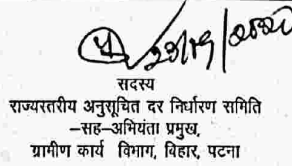 सदस्य
राज्यस्तरीय अनुसूचित दर निर्धारण समिति
–सह–अभियंता प्रमुख,
ग्रामीण कार्य विभाग, बिहार, पटना